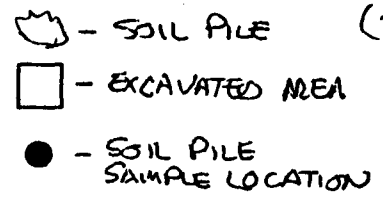 - SOIL PILE
- EXCAVATED AREA
- SOIL PILE
SAMPLE LOCATION